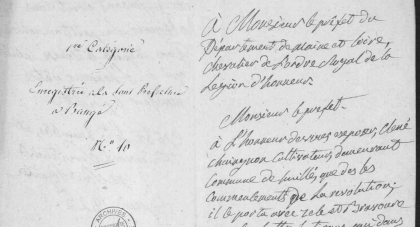 1re Categorie
Enregistrée à la Sous Prefecture
a Baugé
No. 10
à Monsieur le prefet du
Département de maine et loire,
chevalier de L'ordre Royal de la
Legion d'honneur.
Monsieur le prefet.
à L'honneur de vous exposer, Clené
chuignon cultivateur demeurant
Commune de que des les
Commencements de la revolution;
il le porta avec zele et Bravoure
dans
ARCHIVES